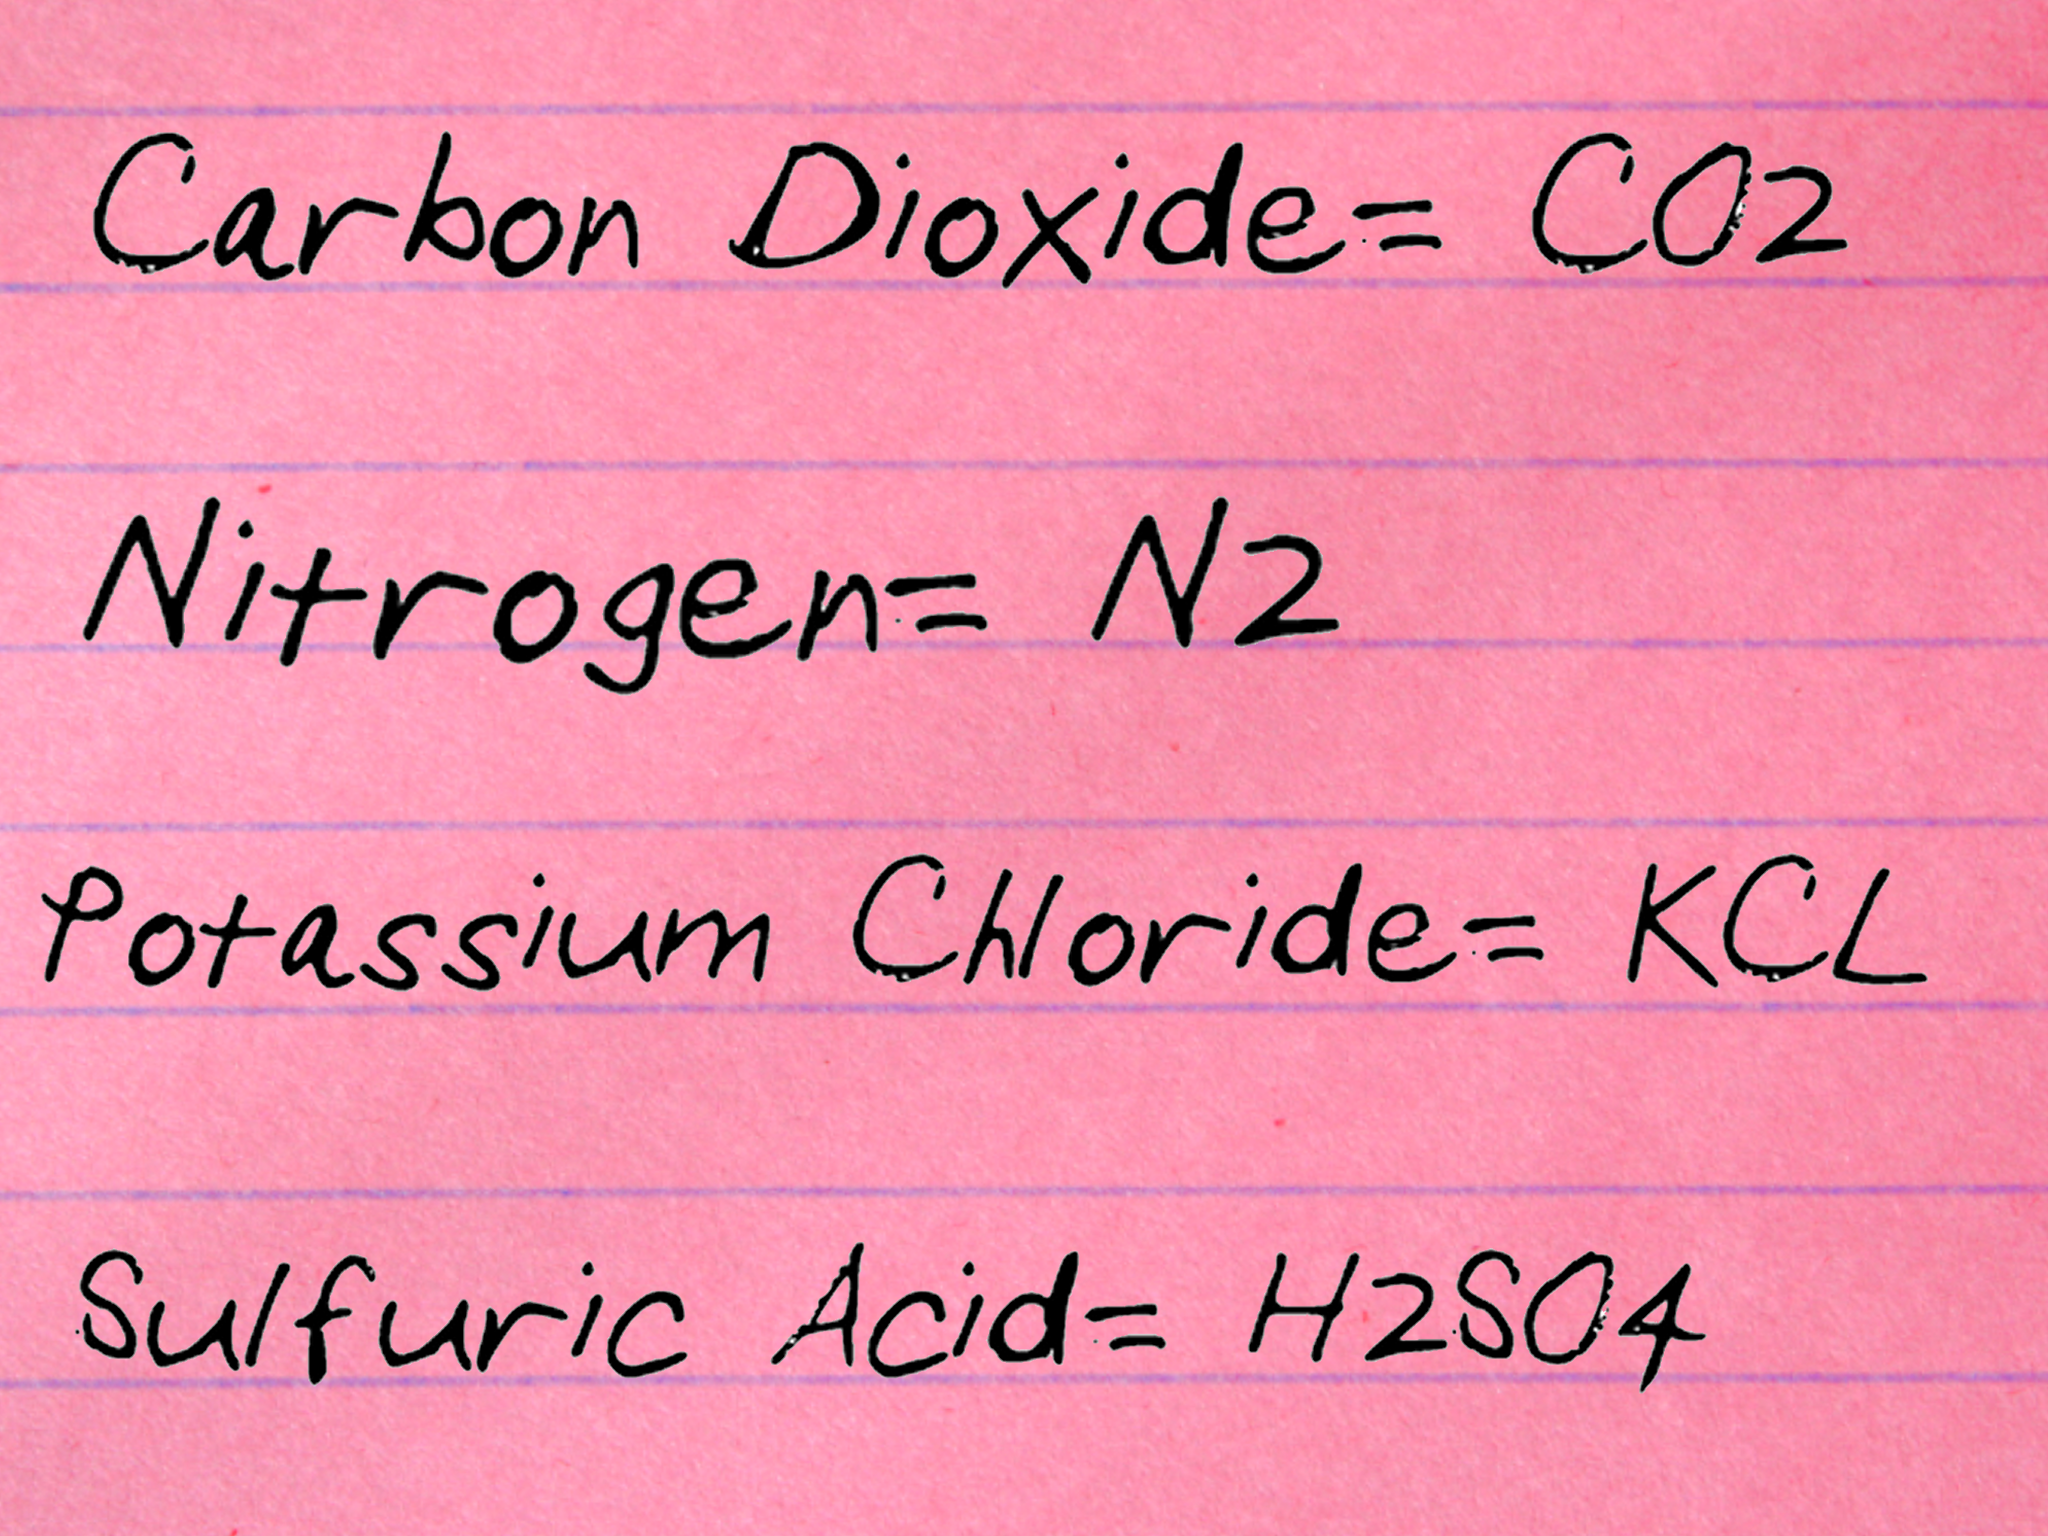 Carbon Dioxide= CO2
Nitrogen= N2
Potassium Chloride= KCL
Sulfuric Acid= H2SO4